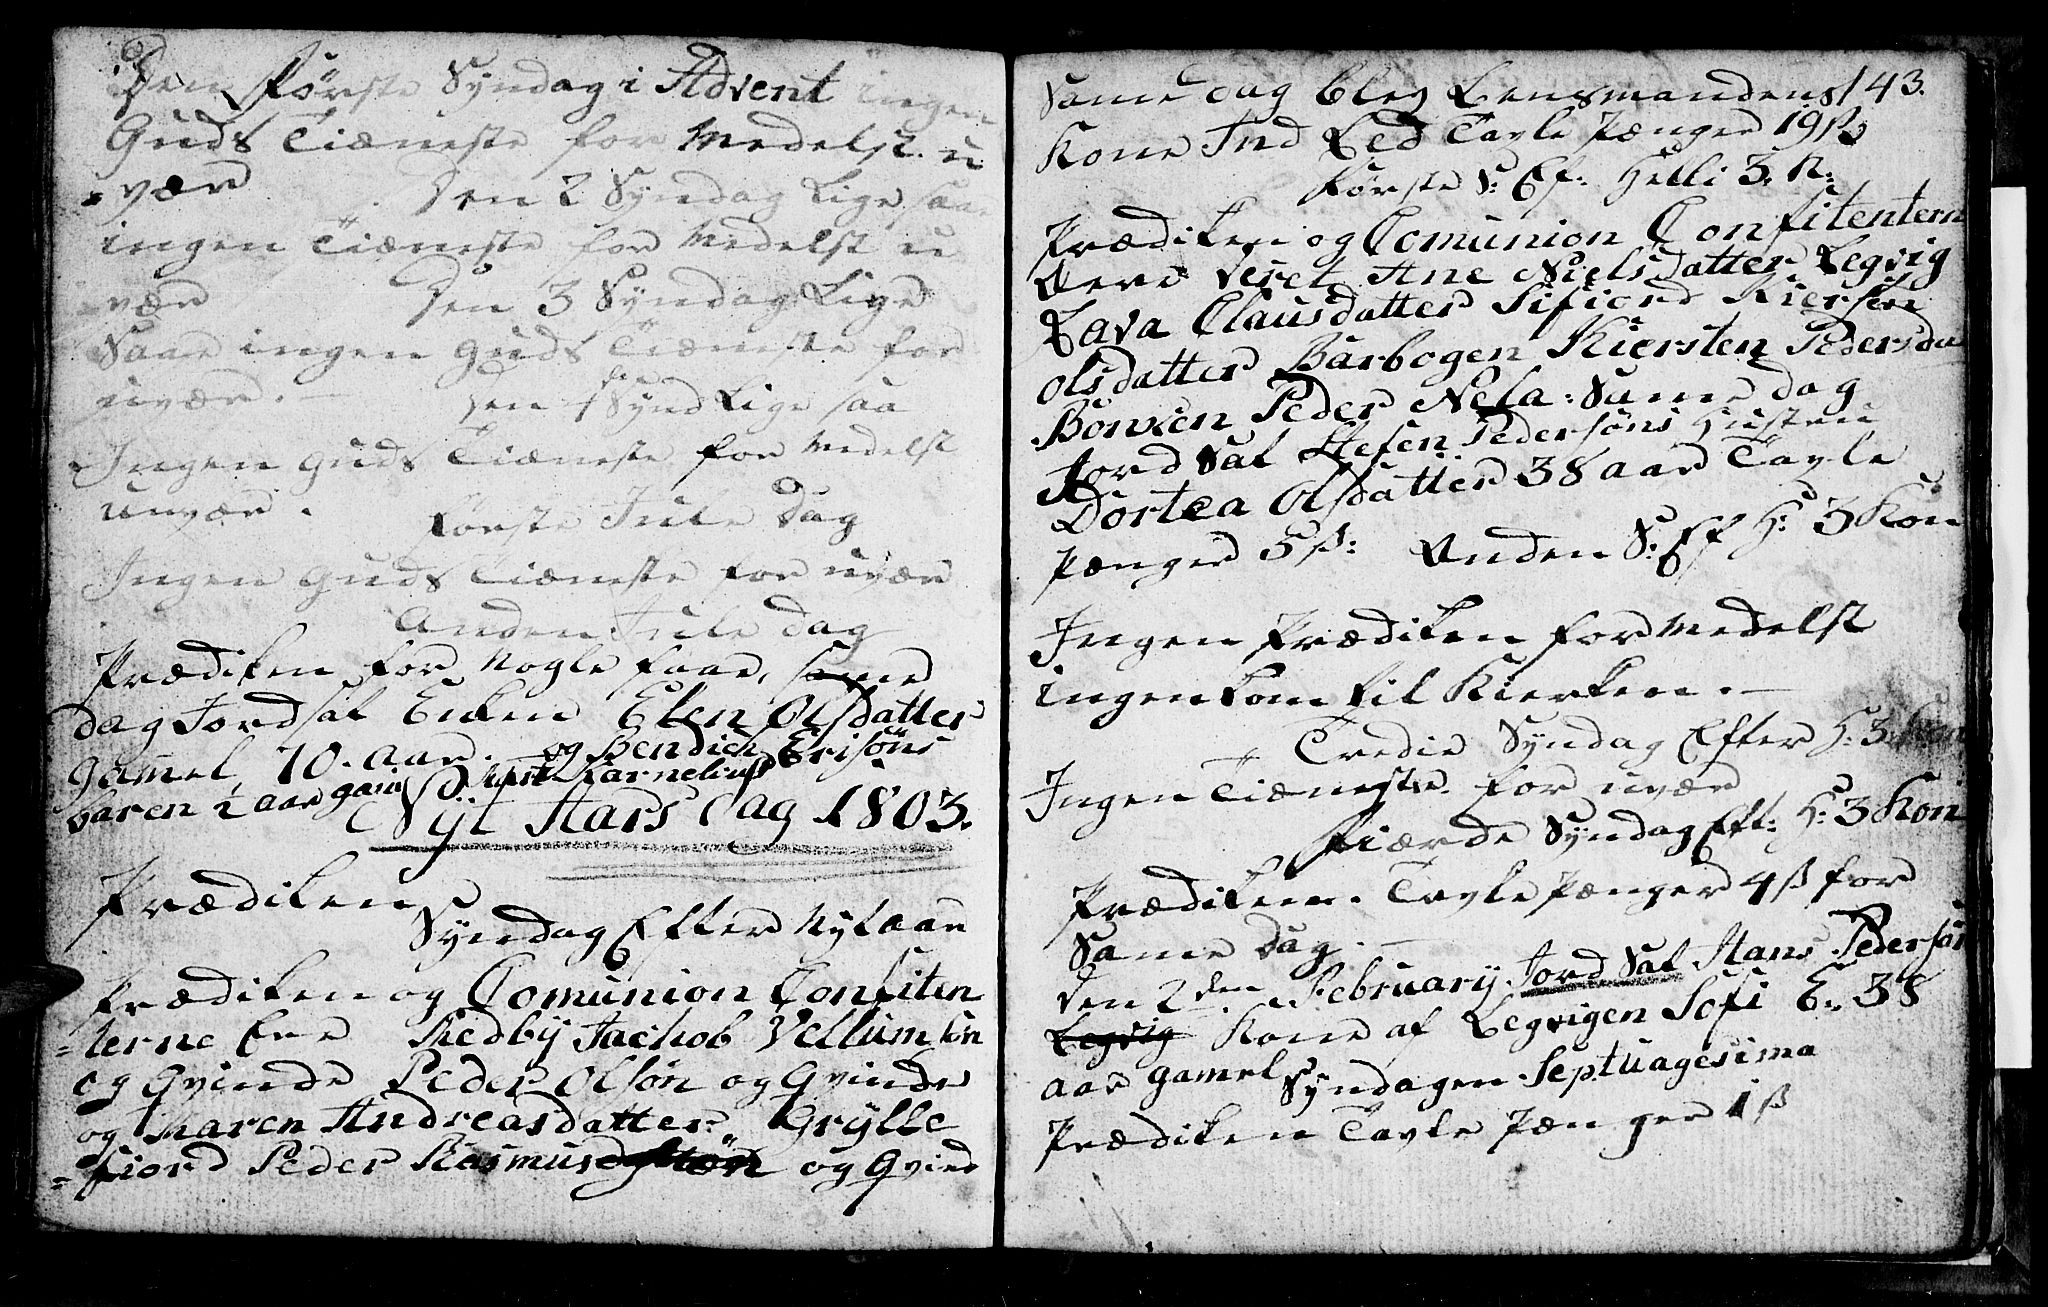 Den Første Syndag i Advent ingen
Guds Tiæneste for Medelst u
=vær Den 2 Syndag Lige saa
ingen Tiæneste for Medelst u
vær Den 3 Syndag Lige
Saae ingen Guds Tiæneste for
uvær. — Den 4 Synd Lige saa
Ingen Guds Tiæneste for Medelst
uvær. Første Jule Dag
Ingen Guds Tiæneste for uvær
Anden Jule Dag
Prædiken for Nogle faae, same
dag Jordsat Enken Elen Olsdatter
gamel 70. aar. og Bendich Erisöns
baren 2 aar gam Karnelius
Nyt Aars Dag 1803.
Prædiken
Syndag Efter Nytaar
Prædiken og Comunion Confiten
=terne Ere Redby Jachob Vellumsön
og Qvinde Peder Olsön og Qvinde
og Maren Andreasdatter Grylle
=fiord Peder Rasmus og Qvind
143.
Same Dag Blef Lensmandens
Kone Ind Led Tavle Pænger 19 ß
Første S: Ef: Helli 3. K:
Prædiken og Comunion Confitentern
Vere Ane Nielsdatter Legvig
Lava Clausdatter Sifiord Kiersten
Olsdatter Barbogen Kiersten Pedersda
Peder Same dag
Jord Sat Pedersöns Husten
Dortea Olsdatter 38 aar Tavle
Pænger 5 ß: Anden S: Ef H: 3 Kon
Ingen Prædiken formedelst
ingen kom til Kierken. —
Tredie Syndag Efter H: 3.
Ingen Tiæneste for uvær
Fiærde Syndag Eft: H: 3 Kon
Prædiken. Tavle Pænger 4 ß for
Same Dag. —
den 2den February Jord Sat Hans Pedersön
Legvig Kone af Legvigen Sofi E. 38
aar gamel Syndagen Septuagesima
Prædiken Tavle Pænger 1 ß